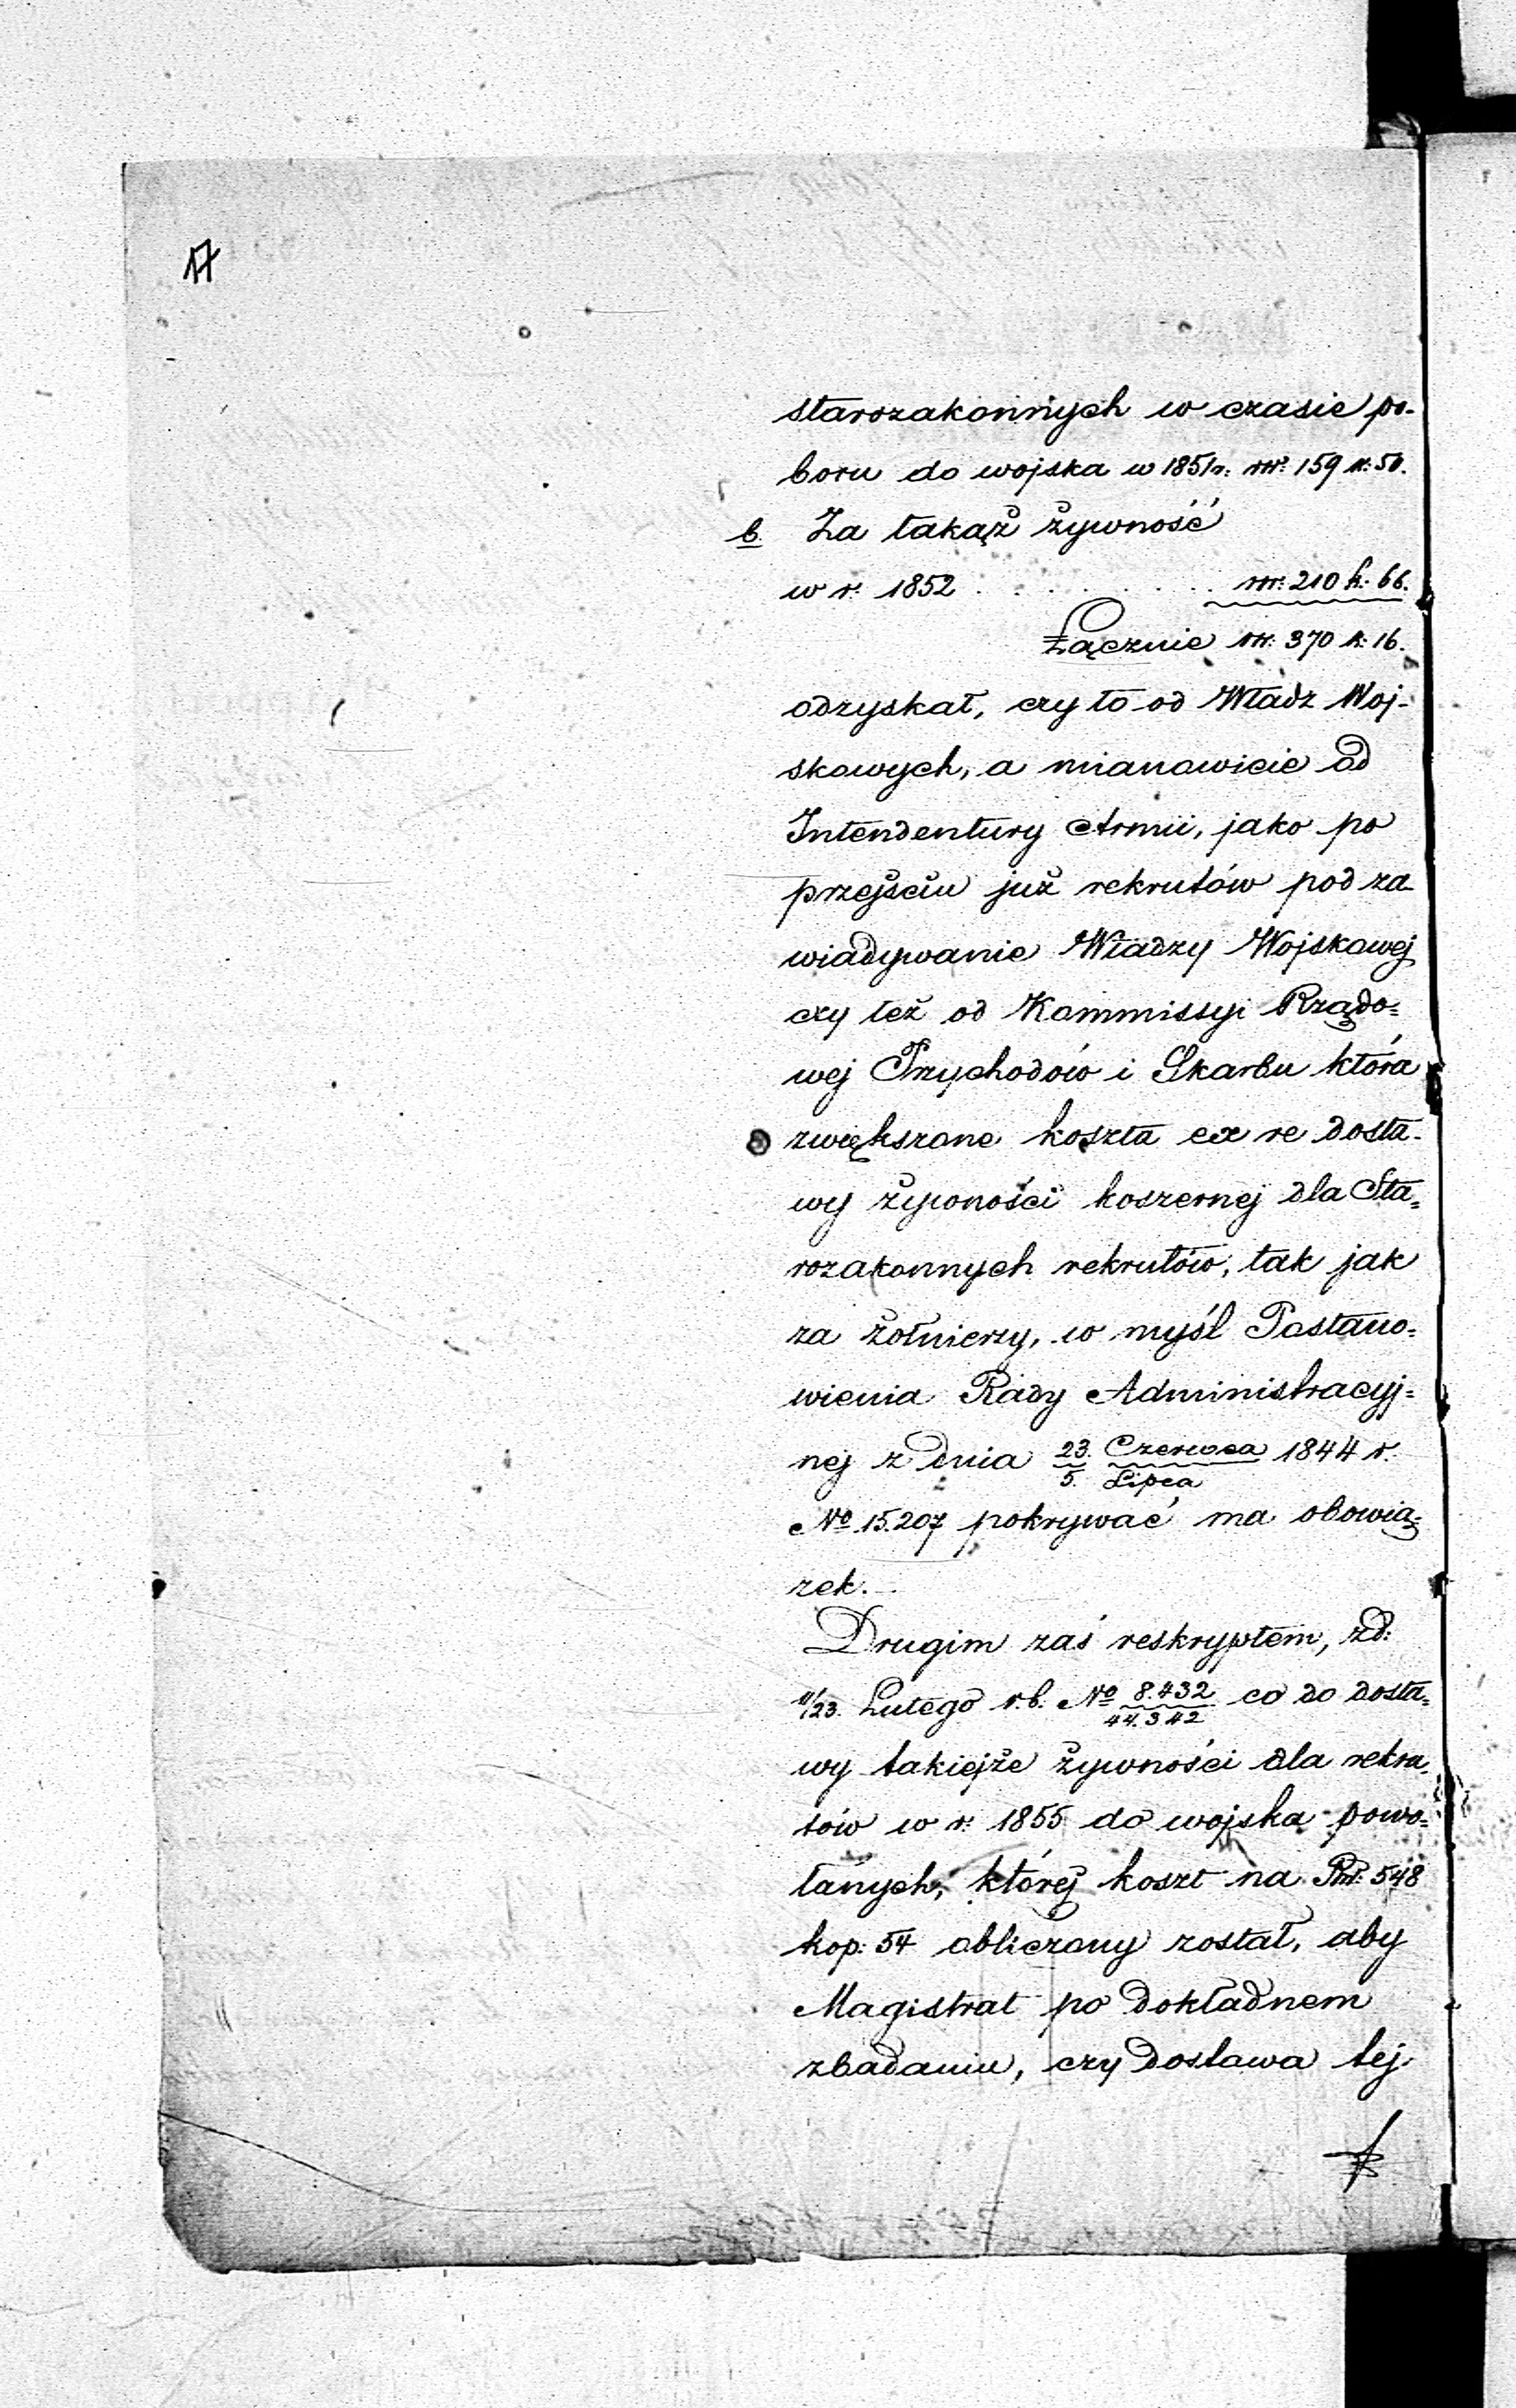 17
starozakonnych w czasie po-
boru do wojska w 1851 r: rsr: 159 k: 50.
b. Za takąż żywność
w r. 1852 . . . . . . . . rsr: 210 k: 66.
Łącznie rsr: 370 k: 16.
odzyskał, czy to od Władz Woj-
skowych, a mianowicie od
Intendentury Armii, jako po
przejściu już rekrutów pod za-
wiadywanie Władzy Wojskowej
czy też od Kommissyi Rządo=
wej Przychodów i Skarbu która
zwiększone koszta ex re dosta-
wy żywności koszernej dla Sta=
rozakonnych rekrutów, tak jak
za żołnierzy, w myśl Postano=
wienia Rady Administracyj=
nej z dnia 23. Czerwca / 5. Lipca 1844 r.
No 15.207 pokrywać ma obowią=
zek.
Drugim zaś reskryptem, z d:
11/23. Lutego r.b. No 8.432 / 44.342 co do dosta=
wy takiejże żywności dla rekru=
tów w r: 1855 do wojska powo=
łanych, której koszt na Rsr: 548
kop: 54 obliczony został, aby
Magistrat po dokładnem
zbadaniu, czy dostawa tej